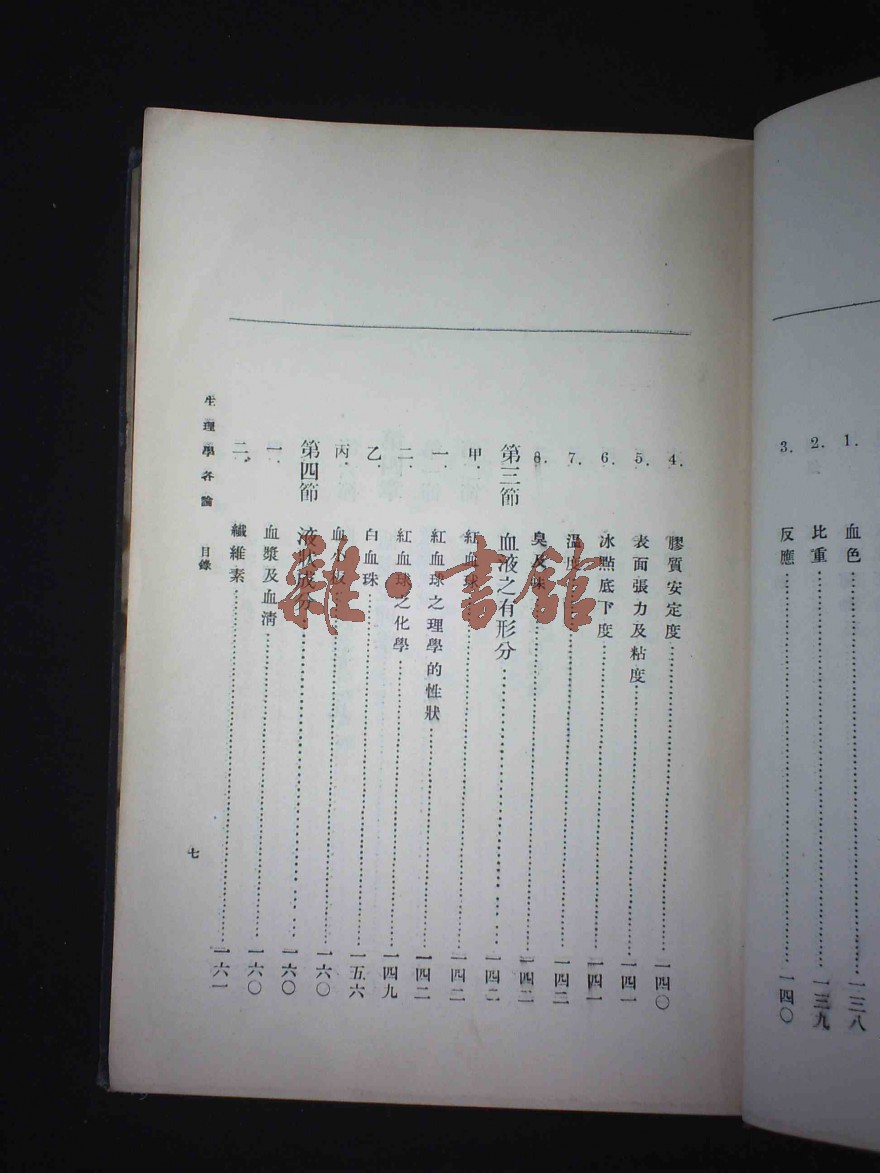 1. 血色……一三八
2. 比重……一三九
3. 反應……一四〇
4. 膠質安定度……一四〇
5. 表面張力及粘度……一四一
6. 冰點底下度……一四一
7. 溫度……一四二
8. 臭及味……一四二
第三節 血液之有形分……一四二
甲. 紅血球……一四二
一. 紅血球之理學的性狀……一四二
二. 紅血球之化學……一四九
乙. 白血珠……一五六
丙. 血小板……一六〇
第四節 液狀成分……一六〇
一. 血漿及血淸……一六〇
二. 纖維素……一六一
生理學各論 目錄
七
雜·書館